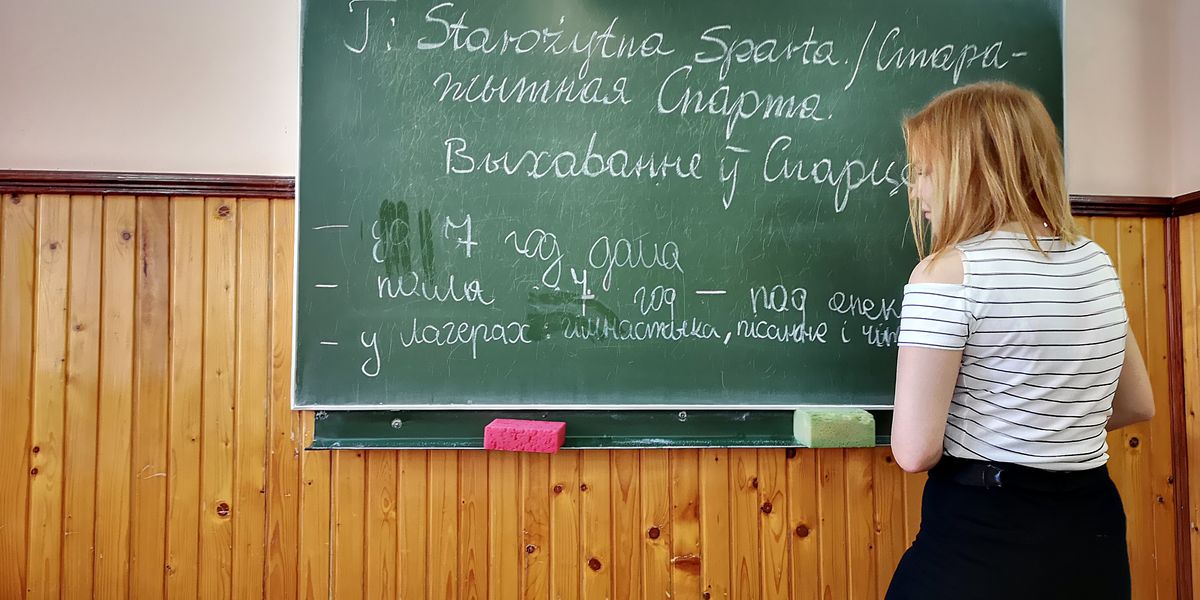 T: Starożytna Sparta. / Стара-
жытная Спарта.
Выхаванне ў Спарце
– да 7 год дома
– посля 7 год – пад апек
– у лагерах: гімнастыка, пісанне і чыт